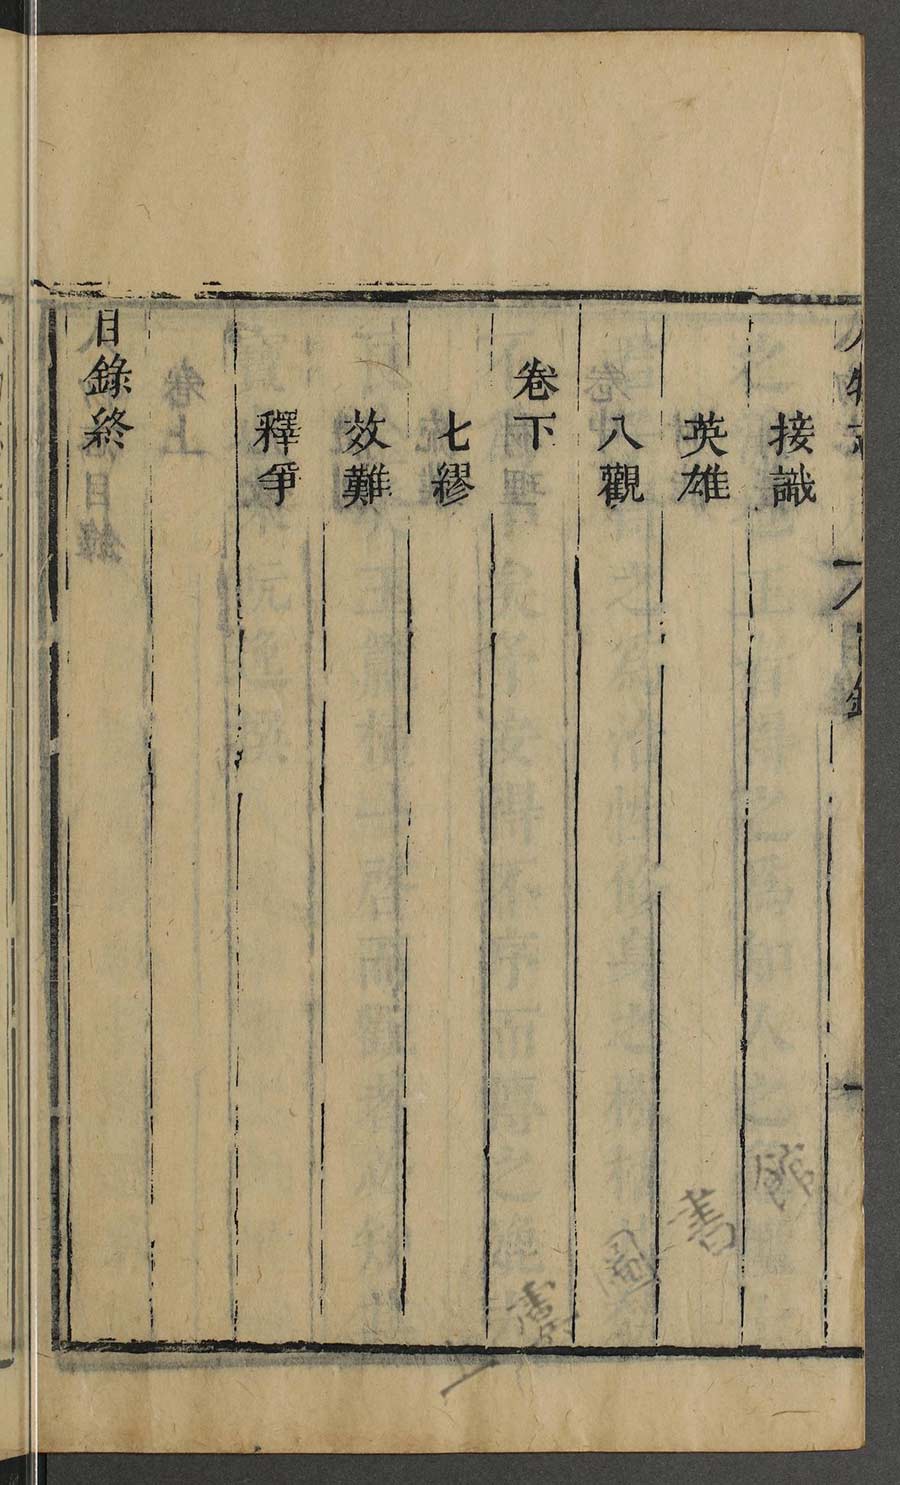 接識
英雄
八觀
卷下
七繆
效難
釋爭
目錄終